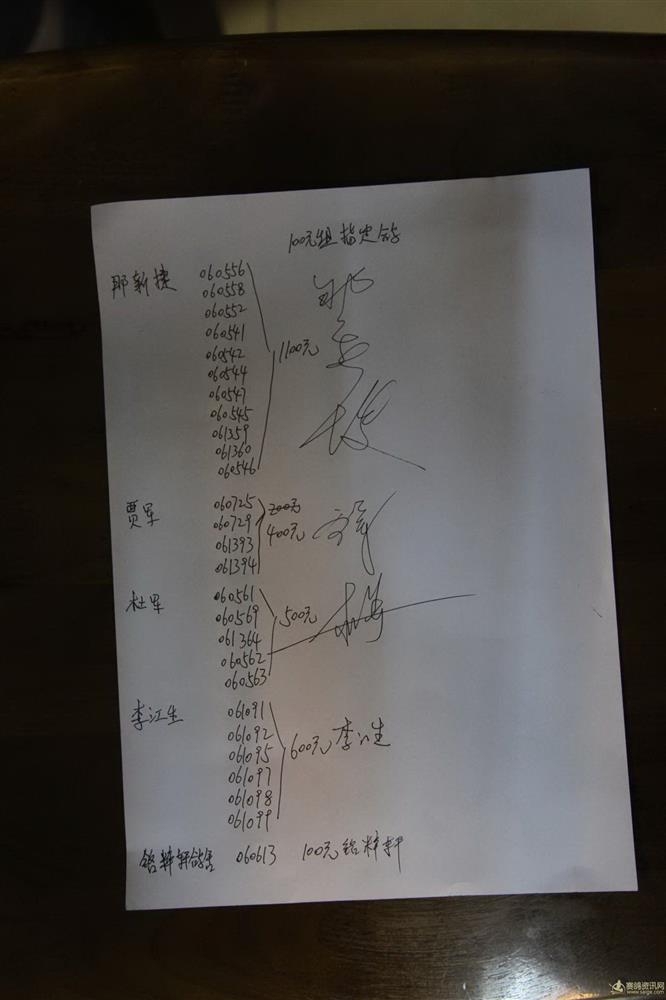 100元组指定鸽
那新捷 060556
060558
060552
060541
060542 1100元
060544
060547
060545
061359
061360
060546
贾军 060725 200元
060729 400元
061393
061394
杜军 060561
060569 500元
061364
060562
060563
李江生 061091
061092
061095 600元 李江生
061097
061098
061099
鸽舍 060613 100元
赛鸽资讯网
www.saige.com